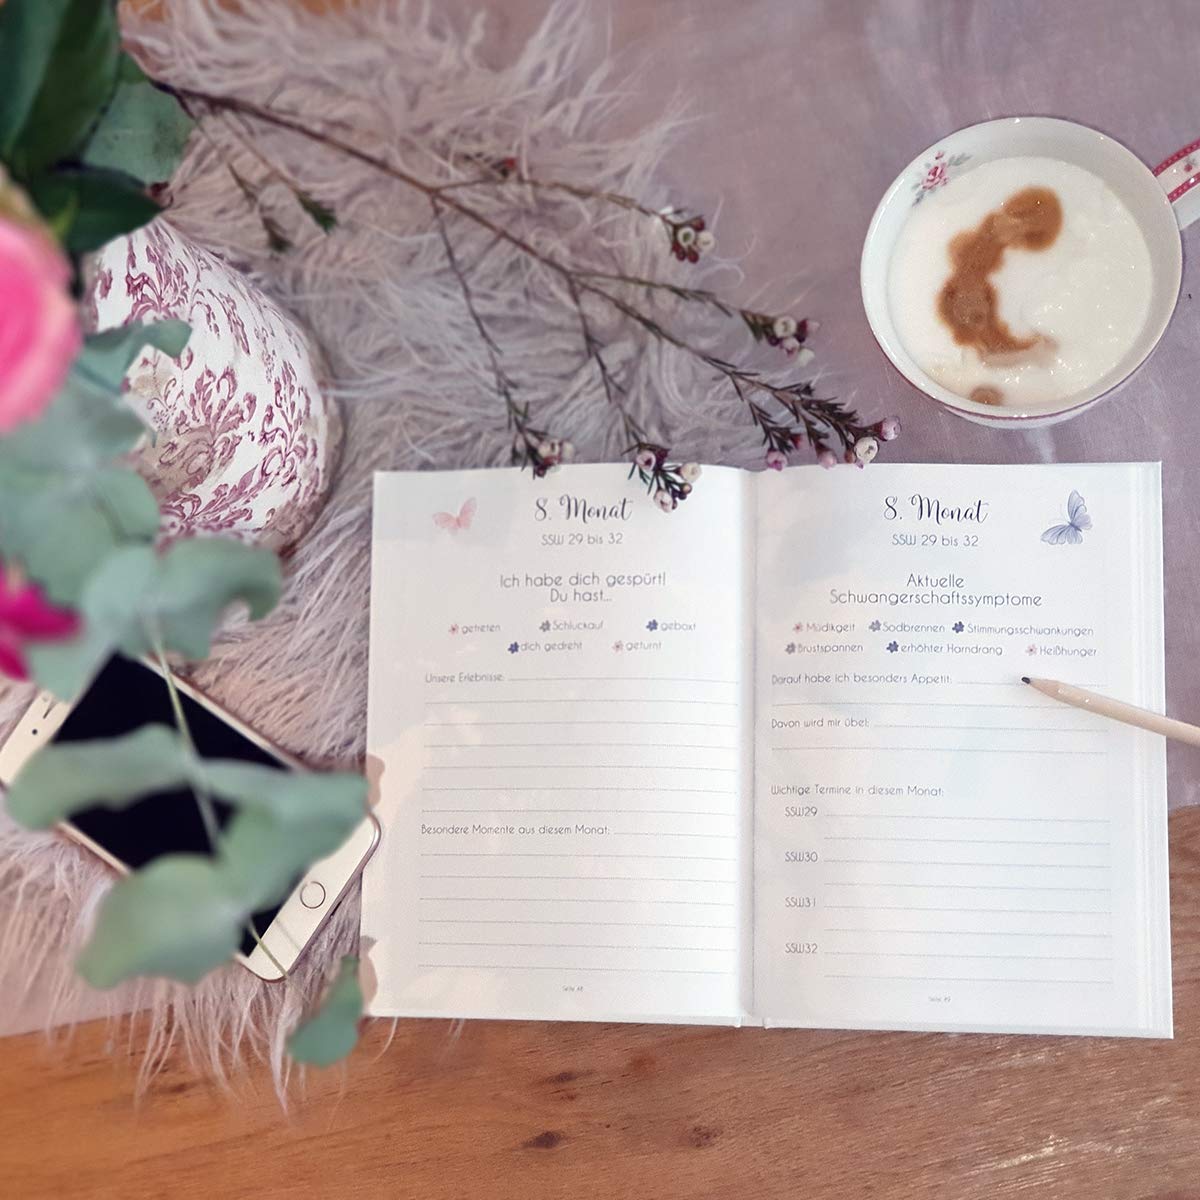 8. Monat
SSW 29 bis 32
Ich habe dich gespürt!
Du hast...
getreten Schluckauf geboxt
dich gedreht geturnt
Unsere Erlebnisse:
Besondere Momente aus diesem Monat:
Seite 48
8. Monat
SSW 29 bis 32
Aktuelle
Schwangerschaftssymptome
Müdigkeit Sodbrennen Stimmungsschwankungen
Brustspannen erhöhter Harndrang Heißhunger
Darauf habe ich besonders Appetit:
Davon wird mir übel:
Wichtige Termine in diesem Monat:
SSW29
SSW30
SSW31
SSW32
Seite 49